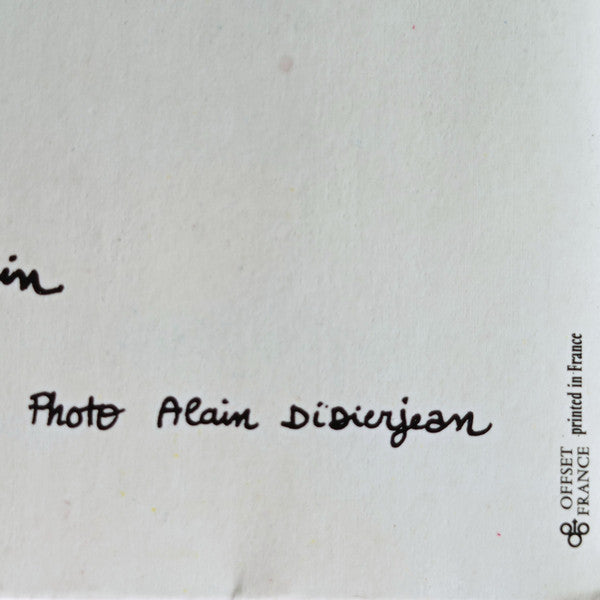 in
Photo Alain Didierjean
OFFSET
FRANCE
printed in France